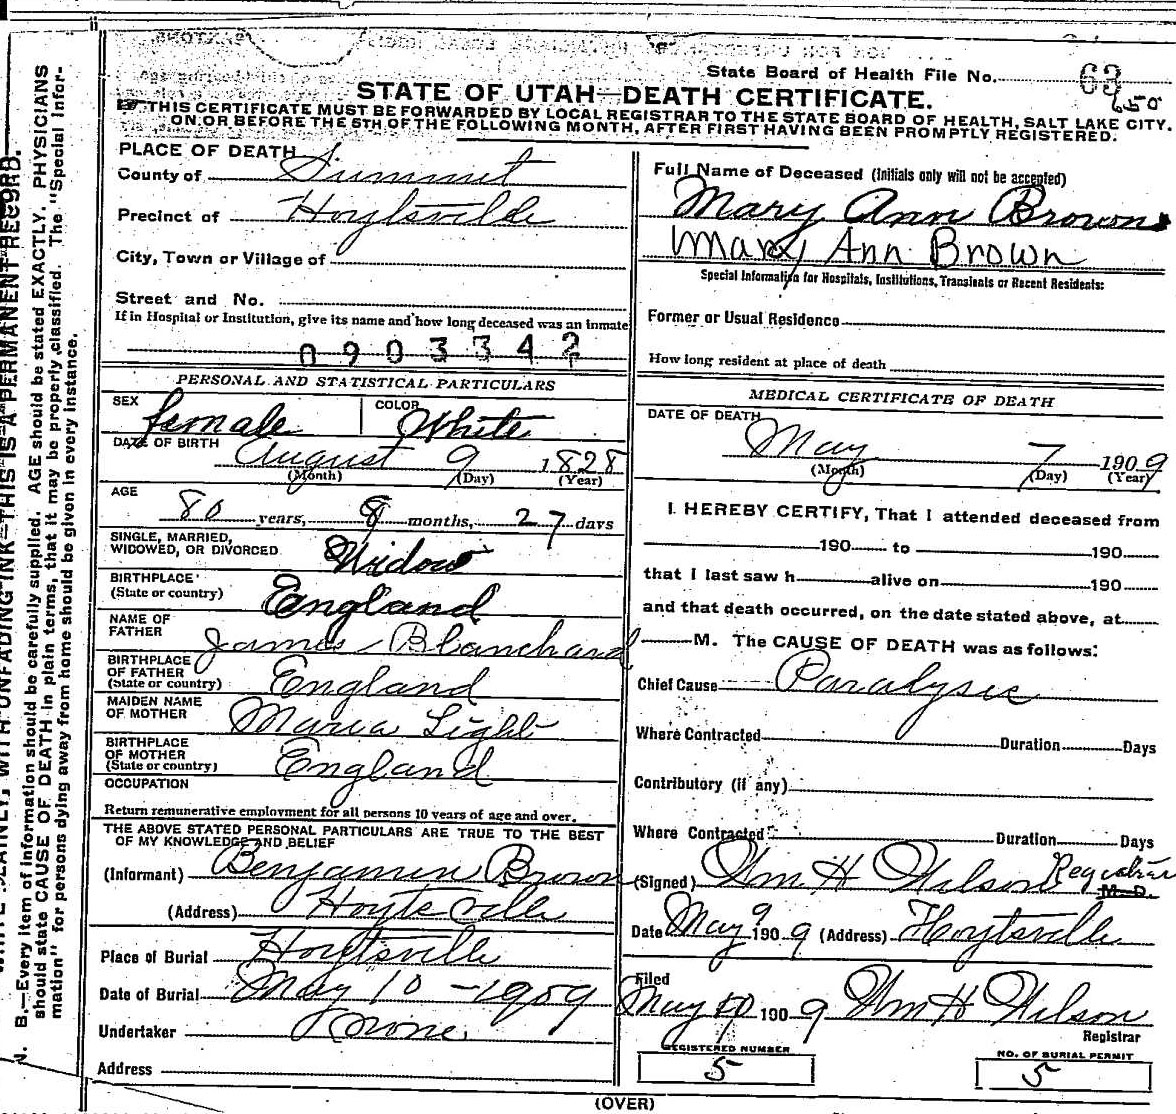 State Board of Health File No. 63
650
STATE OF UTAH—DEATH CERTIFICATE.
THIS CERTIFICATE MUST BE FORWARDED BY LOCAL REGISTRAR TO THE STATE BOARD OF HEALTH, SALT LAKE CITY.
ON OR BEFORE THE 5TH OF THE FOLLOWING MONTH, AFTER FIRST HAVING BEEN PROMPTLY REGISTERED.
PLACE OF DEATH
County of Summit
Precinct of Hoytsville
City, Town or Village of
Street and No.
If in Hospital or Institution, give its name and how long deceased was an inmate
0903342
PERSONAL AND STATISTICAL PARTICULARS
SEX female COLOR White
DATE OF BIRTH August 9 1828
(Month) (Day) (Year)
AGE
80 years, 8 months, 27 days
SINGLE, MARRIED,
WIDOWED, OR DIVORCED Widow
BIRTHPLACE
(State or country) England
NAME OF
FATHER James Blanchard
BIRTHPLACE
OF FATHER
(State or country) England
MAIDEN NAME
OF MOTHER Maria Light
BIRTHPLACE
OF MOTHER
(State or country) England
OCCUPATION
Return remunerative employment for all persons 10 years of age and over.
THE ABOVE STATED PERSONAL PARTICULARS ARE TRUE TO THE BEST
OF MY KNOWLEDGE AND BELIEF
(Informant) Benjamin Brown
(Address) Hoytsville
Place of Burial Hoytsville
Date of Burial May 10 - 1909
Undertaker none
Address
Full Name of Deceased (Initials only will not be accepted)
Mary Ann Brown
Mary Ann Brown
Special Information for Hospitals, Institutions, Transients or Recent Residents:
Former or Usual Residence
How long resident at place of death
MEDICAL CERTIFICATE OF DEATH
DATE OF DEATH
May 7 1909
(Month) (Day) (Year)
I HEREBY CERTIFY, That I attended deceased from
190 to 190
that I last saw h alive on 190
and that death occurred, on the date stated above, at
M. The CAUSE OF DEATH was as follows:
Chief Cause Paralysic
Where Contracted Duration Days
Contributory (if any)
Where Contracted Duration Days
(Signed) Wm H Wilson Registrar M.D.
Date May 9 1909 (Address) Hoytsville
Filed
May 10 1909 Wm H Wilson
Registrar
REGISTERED NUMBER
5
NO. OF BURIAL PERMIT
5
(OVER)
WRITE PLAINLY, WITH UNFADING INK—THIS IS A PERMANENT RECORD.
N. B.—Every item of information should be carefully supplied. AGE should be stated EXACTLY. PHYSICIANS
should state CAUSE OF DEATH in plain terms, that it may be properly classified. The "Special Infor-
mation" for persons dying away from home should be given in every instance.